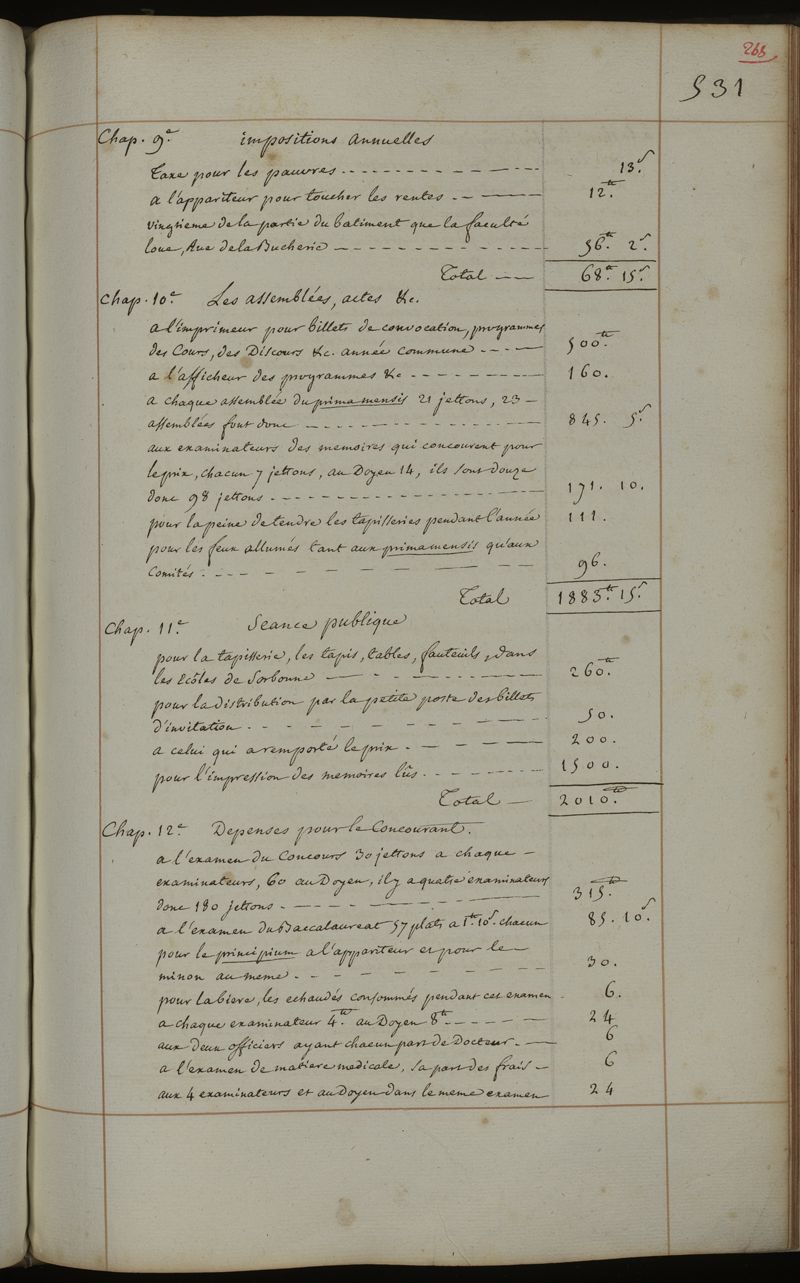 265
531
Chap. 9e. impositions annuelles
Taxe pour les pauvres 13s.
a l'appariteur pour toucher les rentes 12tt.
vingtieme de la partie du batiment que la faculté
loue, Rue de la Bucherie 56tt. 2s.
Total 68tt. 15s.
Chap. 10e. Les assemblées, actes &c.
a l'imprimeur pour billets de convocation, programmes
des Cours, des Discours &c. année commune 500tt.
a l'afficheur des programmes &c 160.
a chaque assemblée du primamensis 21 jettons, 23
assemblées font donc 845. 5s.
aux examinateurs des memoires qui concourent pour
le prix, chacun 7 jettons, au Doyen 14, ils sont douze
donc 98 jettons 171. 10.
pour la peine de tendre les tapisseries pendant l'année 111.
pour les feux allumés tant aux primamensis qu'aux
Comités 96.
Total 1883tt. 15s.
Chap. 11e. Seance publique
pour la tapisserie, les tapis, tables, fauteuils, dans
les Ecôles de Sorbonne 260tt.
pour la distribution par la petite poste des billets
d'invitation 50.
a celui qui a remporté le prix 200.
pour l'impression des memoires lûs 1500.
Total 2010tt.
Chap. 12e Depenses pour le Concourant.
a l'examen du Concours 30 jettons a chaque
examinateurs, 60 au Doyen, il y a quatre examinateurs
donc 180 jettons 315tt.
a l'examen du Baccalaureat 57 plats a 1tt. 10s. chacun 85. 10s.
pour le principium a l'appariteur et pour le
minon au meme 30.
pour la biere, les echaudés consommés pendant cet examen 6.
a chaque examinateur 4tt. au Doyen 8tt. 24
aux deux officiers ayant chacun part de Docteur 6
a l'examen de matiere medicale, sa part des frais 6
aux 4 examinateurs et au Doyen dans le meme examen 24